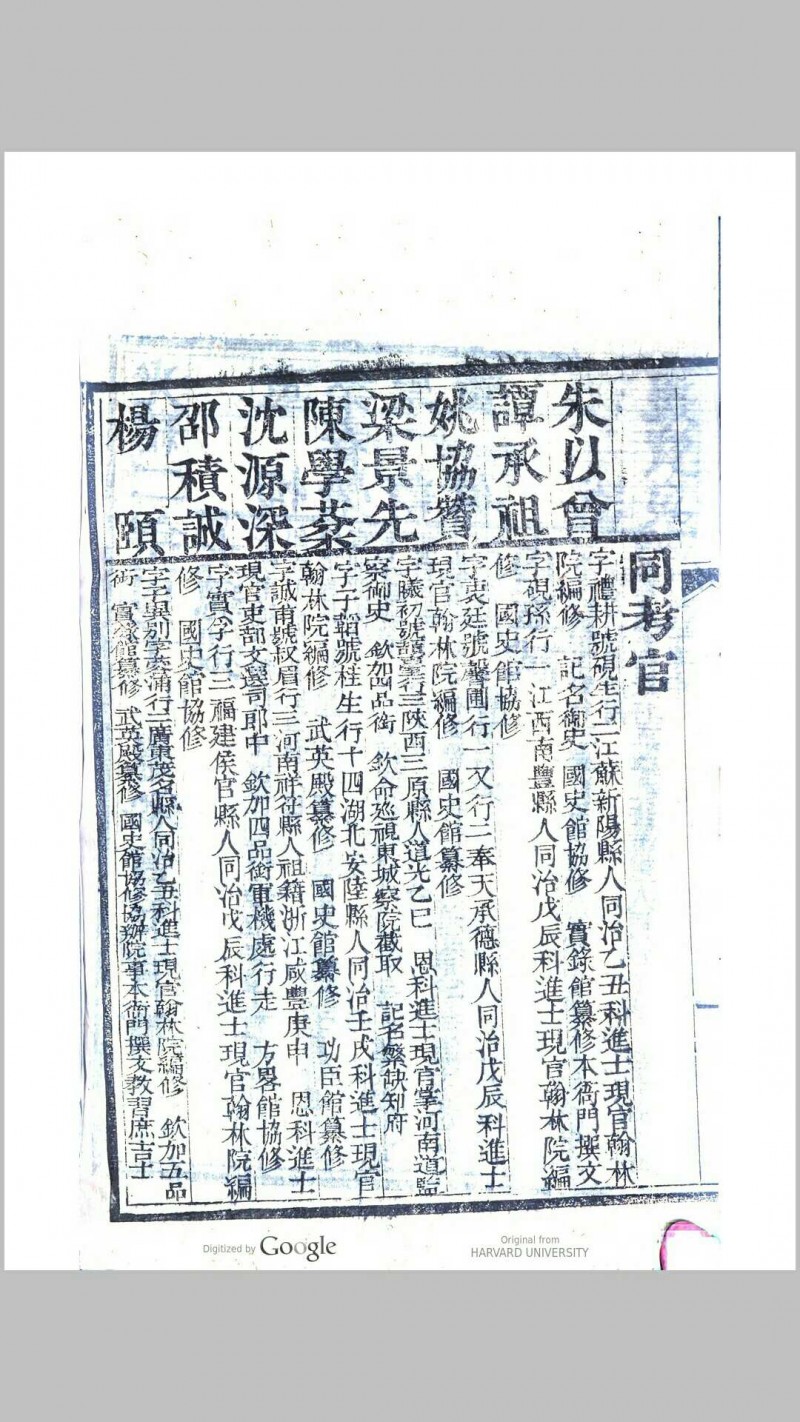 同考官
朱以曾
字禮耕號硯生行二江蘇新陽縣人同治乙丑科進士現官翰林
院編修 記名御史 國史館協修 實錄館纂修本衙門撰文
譚承祖
字硯孫行一江西南豐縣人同治戊辰科進士現官翰林院編
修 國史館協修
姚協贊
字衷廷號馨圃行一又行二奉天承德縣人同治戊辰科進士
現官翰林院編修 國史館纂修
梁景先
字曦初號 行三陝西三原縣人道光乙巳 恩科進士現官掌河南道監
察御史 欽加四品銜 欽命巡視東城察院截取 記名繁缺知府
陳學棻
字子韜號桂生行十四湖北安陸縣人同治壬戌科進士現官
翰林院編修 武英殿纂修 國史館纂修 功臣館纂修
沈源深
字誠甫號叔眉行三河南祥符縣人祖籍浙江咸豐庚申 恩科進士
現官吏部文選司郎中 欽加四品銜軍機處行走 方畧館協修
邵積誠
字實孚行三福建侯官縣人同治戊辰科進士現官翰林院編
修 國史館協修
楊頤
字子異別字蓉浦行二廣東茂名縣人同治乙丑科進士現官翰林院編修 欽加五品
銜 實錄館纂修 武英殿纂修 國史館協修協辦院事本衙門撰文教習庶吉士
Digitized by Google
Original from
HARVARD UNIVERSITY